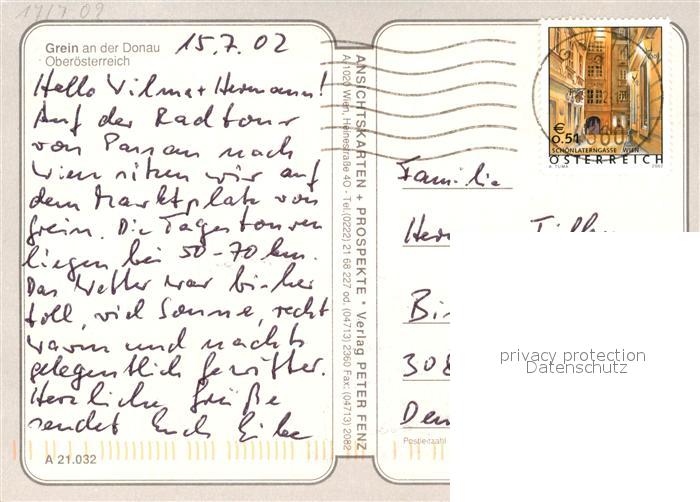 17/7 09
Grein an der Donau
Oberösterreich
15.7.02
Hello Vilma + Hermann!
Auf der Radtour
von Passau nach
Wien sitzen wir auf
dem Marktplatz von
Grein. Die Tagestouren
liegen bei 50-70 km.
Das Wetter war bisher
toll, viel Sonne, recht
warm und nachts
gelegentlich Gewitter.
Herzliche Grüße
sendet Euch
A 21.032
ANSICHTSKARTEN + PROSPEKTE * Verlag PETER FENZ
A-1020 Wien, Heinestraße 40 - Tel. (0222) 21 68 227 od. (04713) 2360 Fax: (04713) 2082
€
0.51
SCHÖNLATERNGASSE WIEN
ÖSTERREICH
A. TUMA 2002
Familie
Her
Bi
308
Den
Postleitzahl
privacy protection
Datenschutz